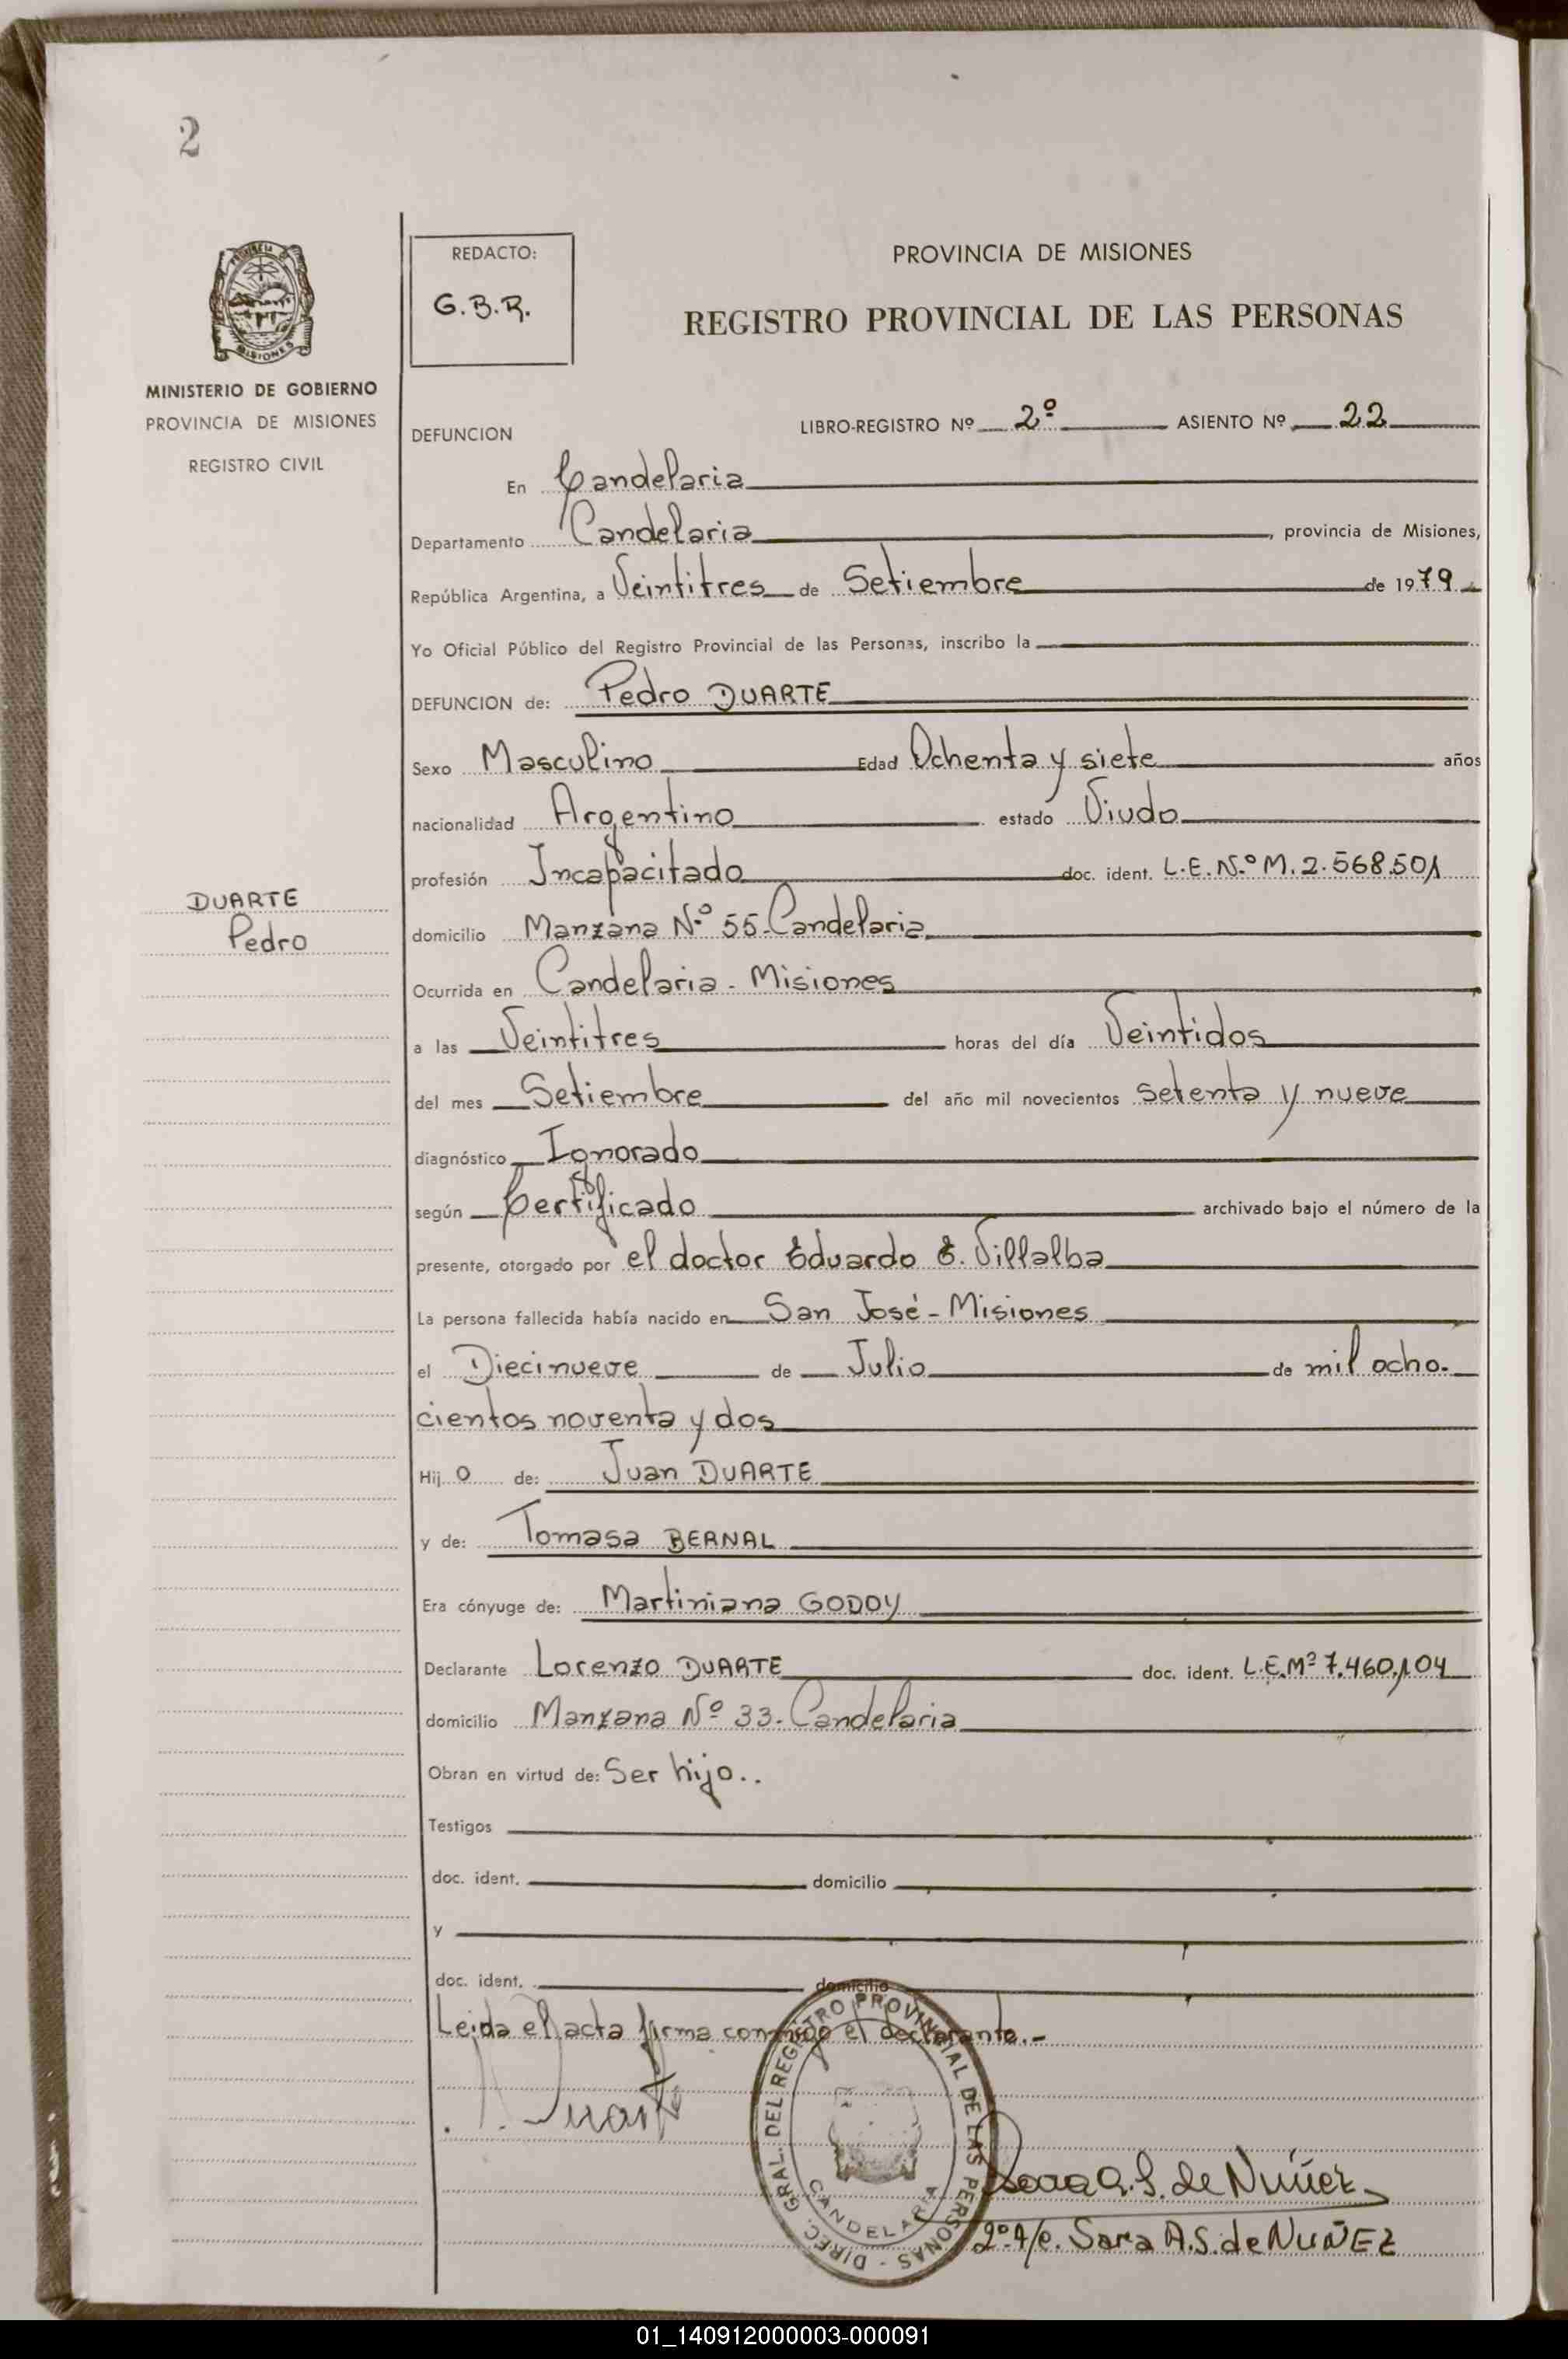 2
PROVINCIA DE MISIONES
MINISTERIO DE GOBIERNO
PROVINCIA DE MISIONES
REGISTRO CIVIL
DUARTE
Pedro
REDACTO:
G.B.R.
PROVINCIA DE MISIONES
REGISTRO PROVINCIAL DE LAS PERSONAS
DEFUNCION LIBRO-REGISTRO Nº 2º ASIENTO Nº 22
En Candelaria
Departamento Candelaria, provincia de Misiones,
República Argentina, a Veintitres de Setiembre de 1979.
Yo Oficial Público del Registro Provincial de las Personas, inscribo la
DEFUNCION de: Pedro DUARTE
Sexo Masculino Edad Ochenta y siete años
nacionalidad Argentino estado Viudo
profesión Incapacitado doc. ident. L.E. Nº M. 2.568.501
domicilio Manzana Nº 55-Candelaria
Ocurrida en Candelaria - Misiones
a las Veintitres horas del día Veintidos
del mes Setiembre del año mil novecientos setenta y nueve
diagnóstico Ignorado
según Certificado archivado bajo el número de la
presente, otorgado por el doctor Eduardo E. Villalba
La persona fallecida había nacido en San José - Misiones
el Diecinueve de Julio de mil ocho-
cientos noventa y dos
Hij o de: Juan DUARTE
y de: Tomasa BERNAL
Era cónyuge de: Martiniana GODOY
Declarante Lorenzo DUARTE doc. ident. L.E.Mº 7.460.104
domicilio Manzana Nº 33-Candelaria
Obran en virtud de: Ser hijo..
Testigos
doc. ident. domicilio
y
doc. ident. domicilio
Leida el acta firma conmigo el declarante.-
Duarte
DIREC. GRAL. DEL REGISTRO PROVINCIAL DE LAS PERSONAS -
CANDELARIA
Sara A.S. de Nuñez
Sara A.S. de NUÑEZ
01_140912000003-000091